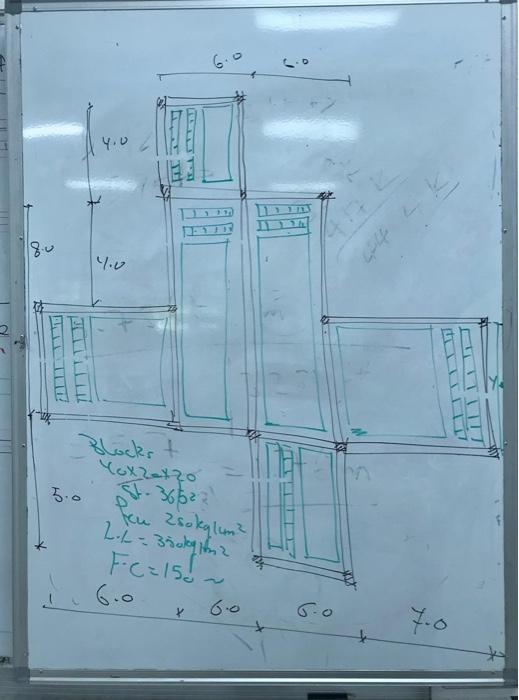 6.0 6.0
4.0
8.0
4.0
4
Blocks
40x20x20
St. 36/52
Fcu 250kg/cm2
L.L = 350kg/m2
F.C = 150 ~
5.0
6.0 6.0 6.0 7.0